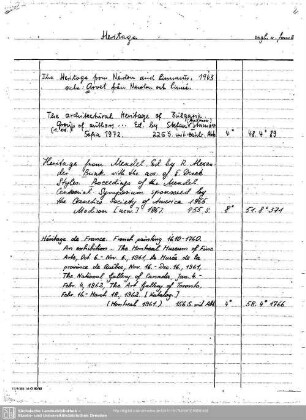 Heritage
engl. u. franz.
The Heritage from Newton and Linnaeus. 1963
siehe: Arvet från Newton och Linné.
The architectural Heritage of Bulgaria.
Group of authors ... Ed. by Stefan
Sofia 1972. 225 S. mit zahlr. Abb 4° 48. 4° 89
Heritage from Mendel. Ed. by R. Alexander
Brink with the ass. of E. Derek
Styles. Proceedings of the Mendel
Centennial Symposium sponsored by
the Genetics Society of America 1965.
Madison 1967. 455 S. 8° 51. 8° 371
Héritage de France. French painting 1610-1760.
An exhibition. The Montreal Museum of Fine
Arts, Oct. 6 - Nov. 6, 1961. Le Musée de la
province de Québec, Nov. 16 - Dec. 16, 1961.
The National Gallery of Canada, Jan. 4 -
Febr. 4, 1962. The Art Gallery of Toronto,
Febr. 16 - March 18, 1962. (Katalog)
(Montreal 1961.) 156 S. mit Abb 4° 58. 4° 1766